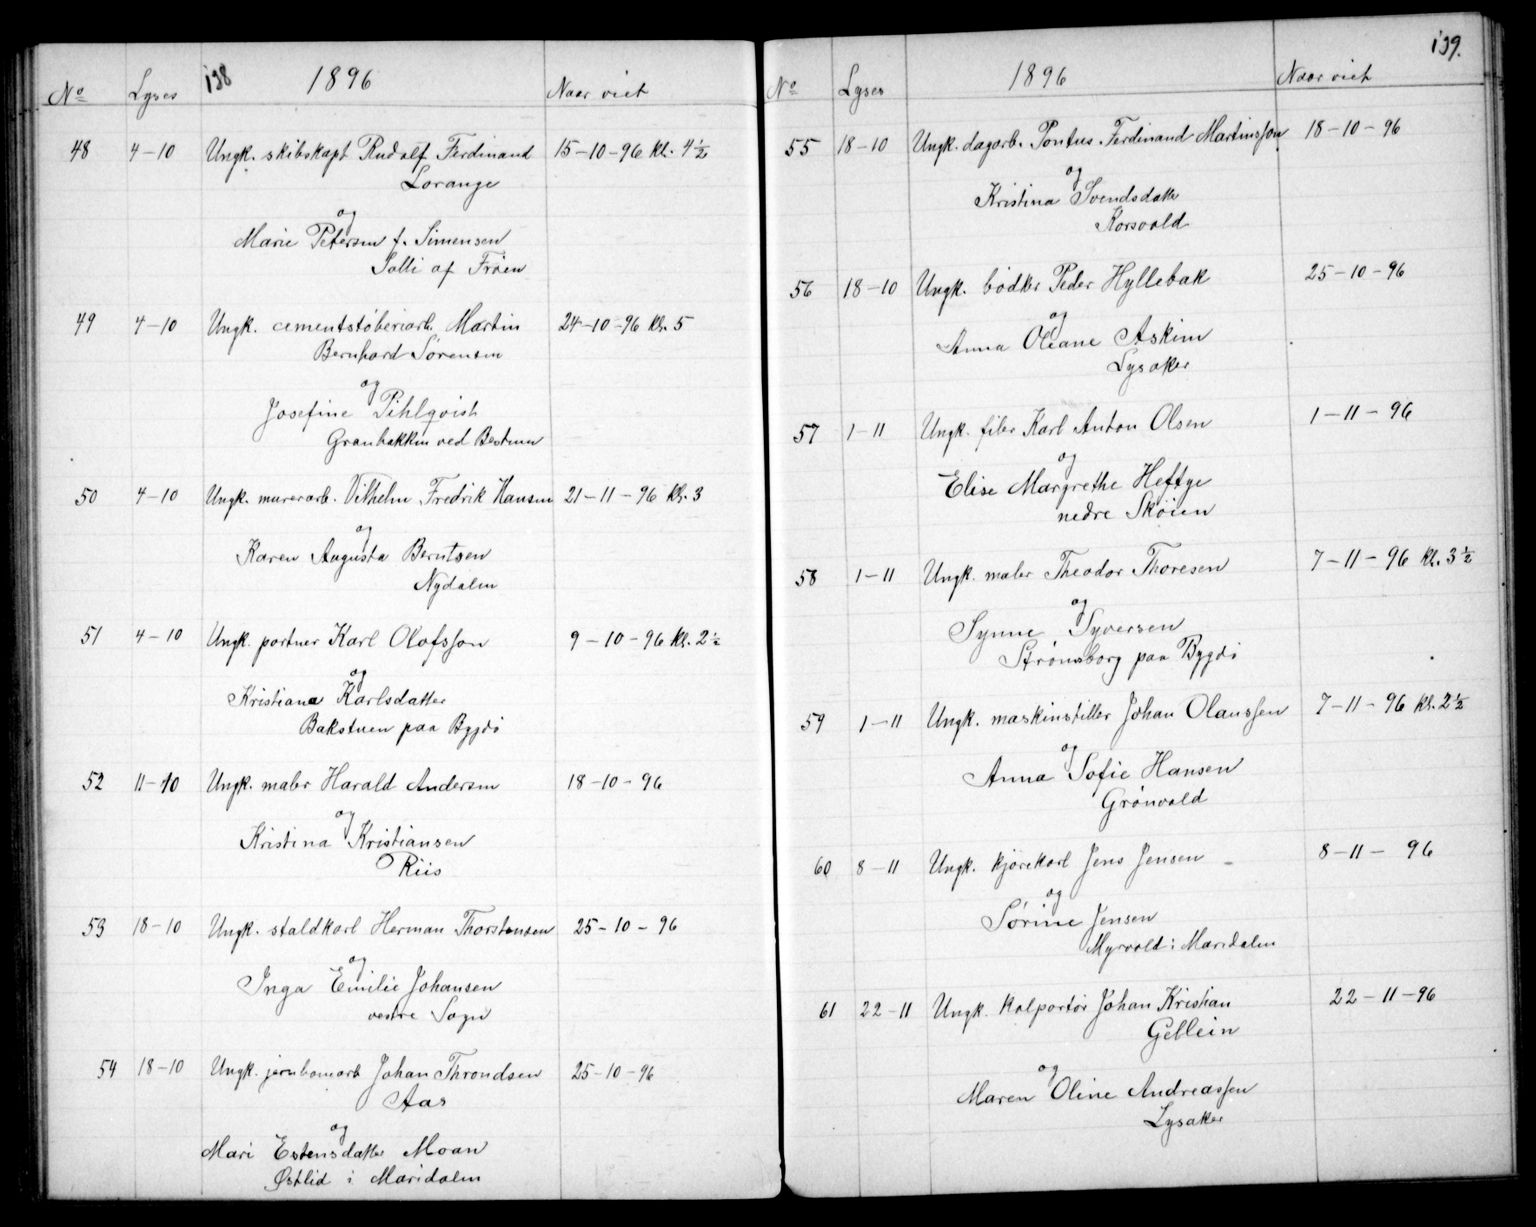 138
No Lyses 1896 Naar viet
48 4-10 Ungk. skibskapt Rudolf Ferdinand 15-10-96 kl. 4½
Lorange
og
Marie Petersen f. Simensen
Solli af Frøen
49 4-10 Ungk. cementstøberiarb. Martin 24-10-96 kl. 5
Bernhard Sørensen
og
Josefine Pihlqvist
Granbakken ved Bestum
50 4-10 Ungk. murerarb. Vilhelm Fredrik Hansen 21-11-96 kl. 3
og
Karen Augusta Berntsen
Nydalen
51 4-10 Ungk. portner Karl Olofsson 9-10-96 kl. 2½
og
Kristiana Karlsdatter
Bakstuen paa Bygdø
52 11-10 Ungk. maler Harald Andersen 18-10-96
og
Kristina Kristiansen
Riis
53 18-10 Ungk. staldkarl Herman Thorstensen 25-10-96
og
Inga Emilie Johansen
vestre Sogn
54 18-10 Ungk. jernbanearb Johan Throndsen 25-10-96
Aas
og
Mari Estensdatter Moan
Østlid i Maridalen
139.
No Lyses 1896 Naar viet
55 18-10 Ungk. dagarb. Pontus Ferdinand Martinsson 18-10-96
og
Kristina Svendsdatter
Korsvold
56 18-10 Ungk. bødker Peder Hyllebak 25-10-96
og
Anna Oleane Askim
Lysaker
57 1-11 Ungk. filer Karl Anton Olsen 1-11-96
og
Elise Margrethe Heftye
nedre Skøien
58 1-11 Ungk. maler Theodor Thoresen 7-11-96 kl. 3½
og
Synne Syversen
Strømsborg paa Bygdø
59 1-11 Ungk. maskinstiller Johan Olaussen 7-11-96 kl. 2½
og
Anna Sofie Hansen
Grønvold
60 8-11 Ungk. kjørekarl Jens Jensen 8-11-96
og
Sørine Jensen
Myrvold i Maridalen
61 22-11 Ungk. kolportør Johan Kristian 22-11-96
Gellein
og
Maren Oline Andreassen
Lysaker